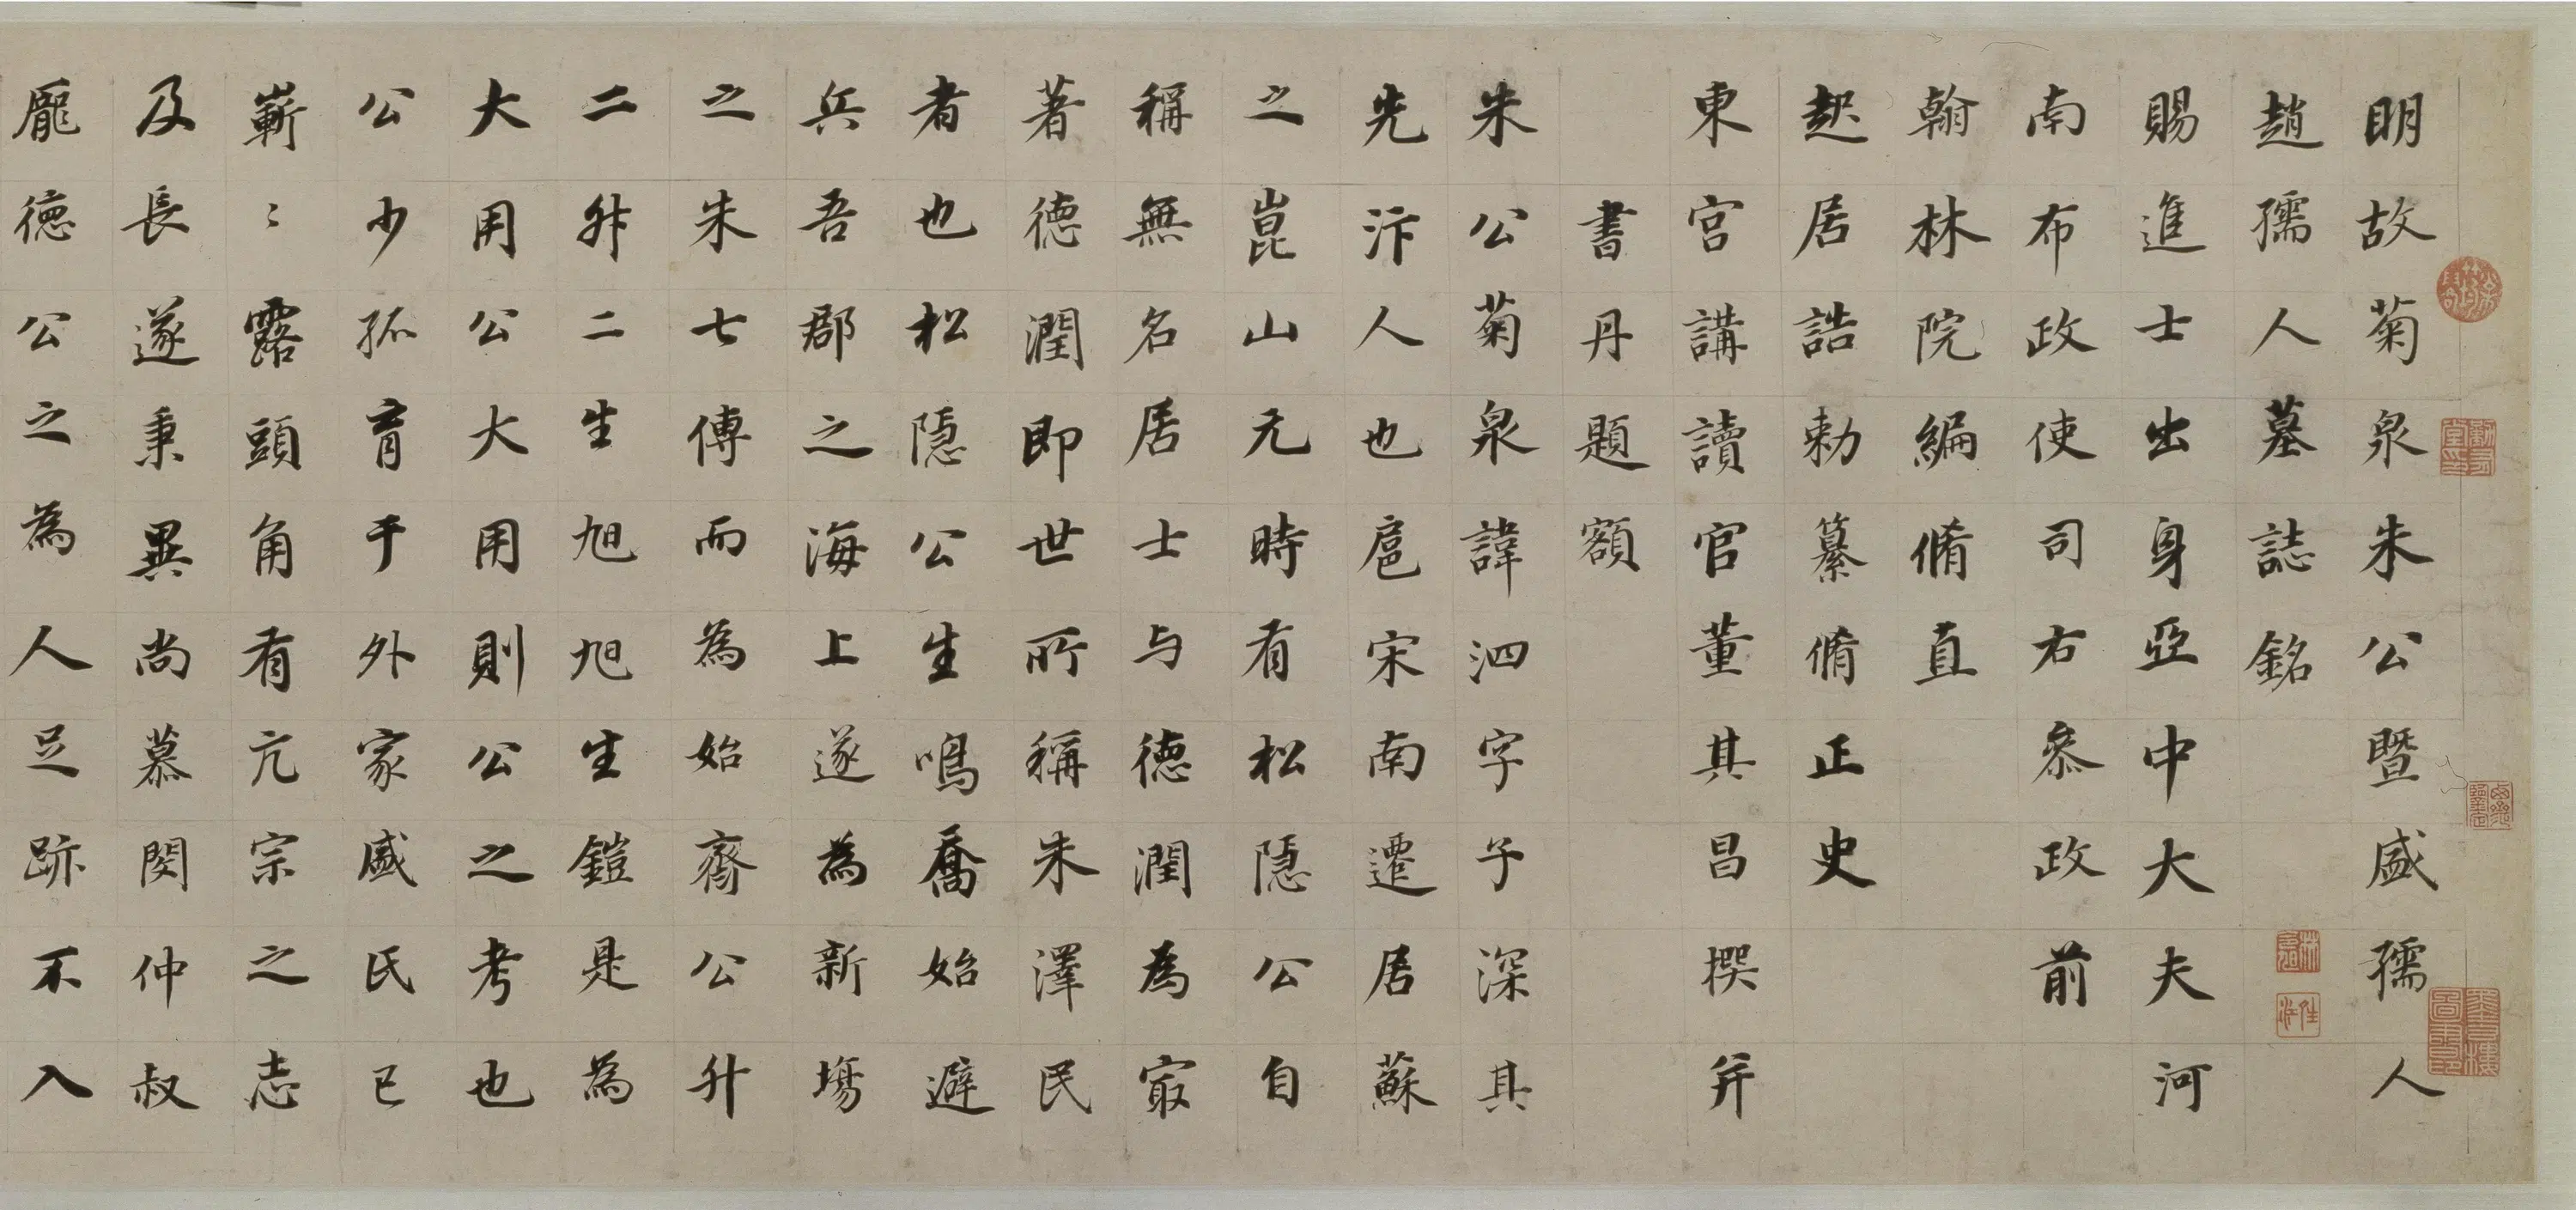 明故菊泉朱公暨盛孺人
趙孺人墓誌銘
賜進士出身亞中大夫河
南布政使司右叅政前
翰林院編脩直
起居誥勅纂脩正史
東宮講讀官董其昌撰并
書丹題額
朱公菊泉諱泗字子深其
先汴人也扈宋南遷居蘇
之崑山元時有松隱公自
稱無名居士与德潤為㝡
著德潤即世所稱朱澤民
者也松隱公生鳴喬始避
兵吾郡之海上遂為新場
之朱七傳而為始齋公升
二升二生旭旭生鎧是為
大用公大用則公之考也
公少孤育于外家盛氏已
嶄〻露頭角有亢宗之志
及長遂秉異尚慕閔仲叔
龐德公之為人足跡不入